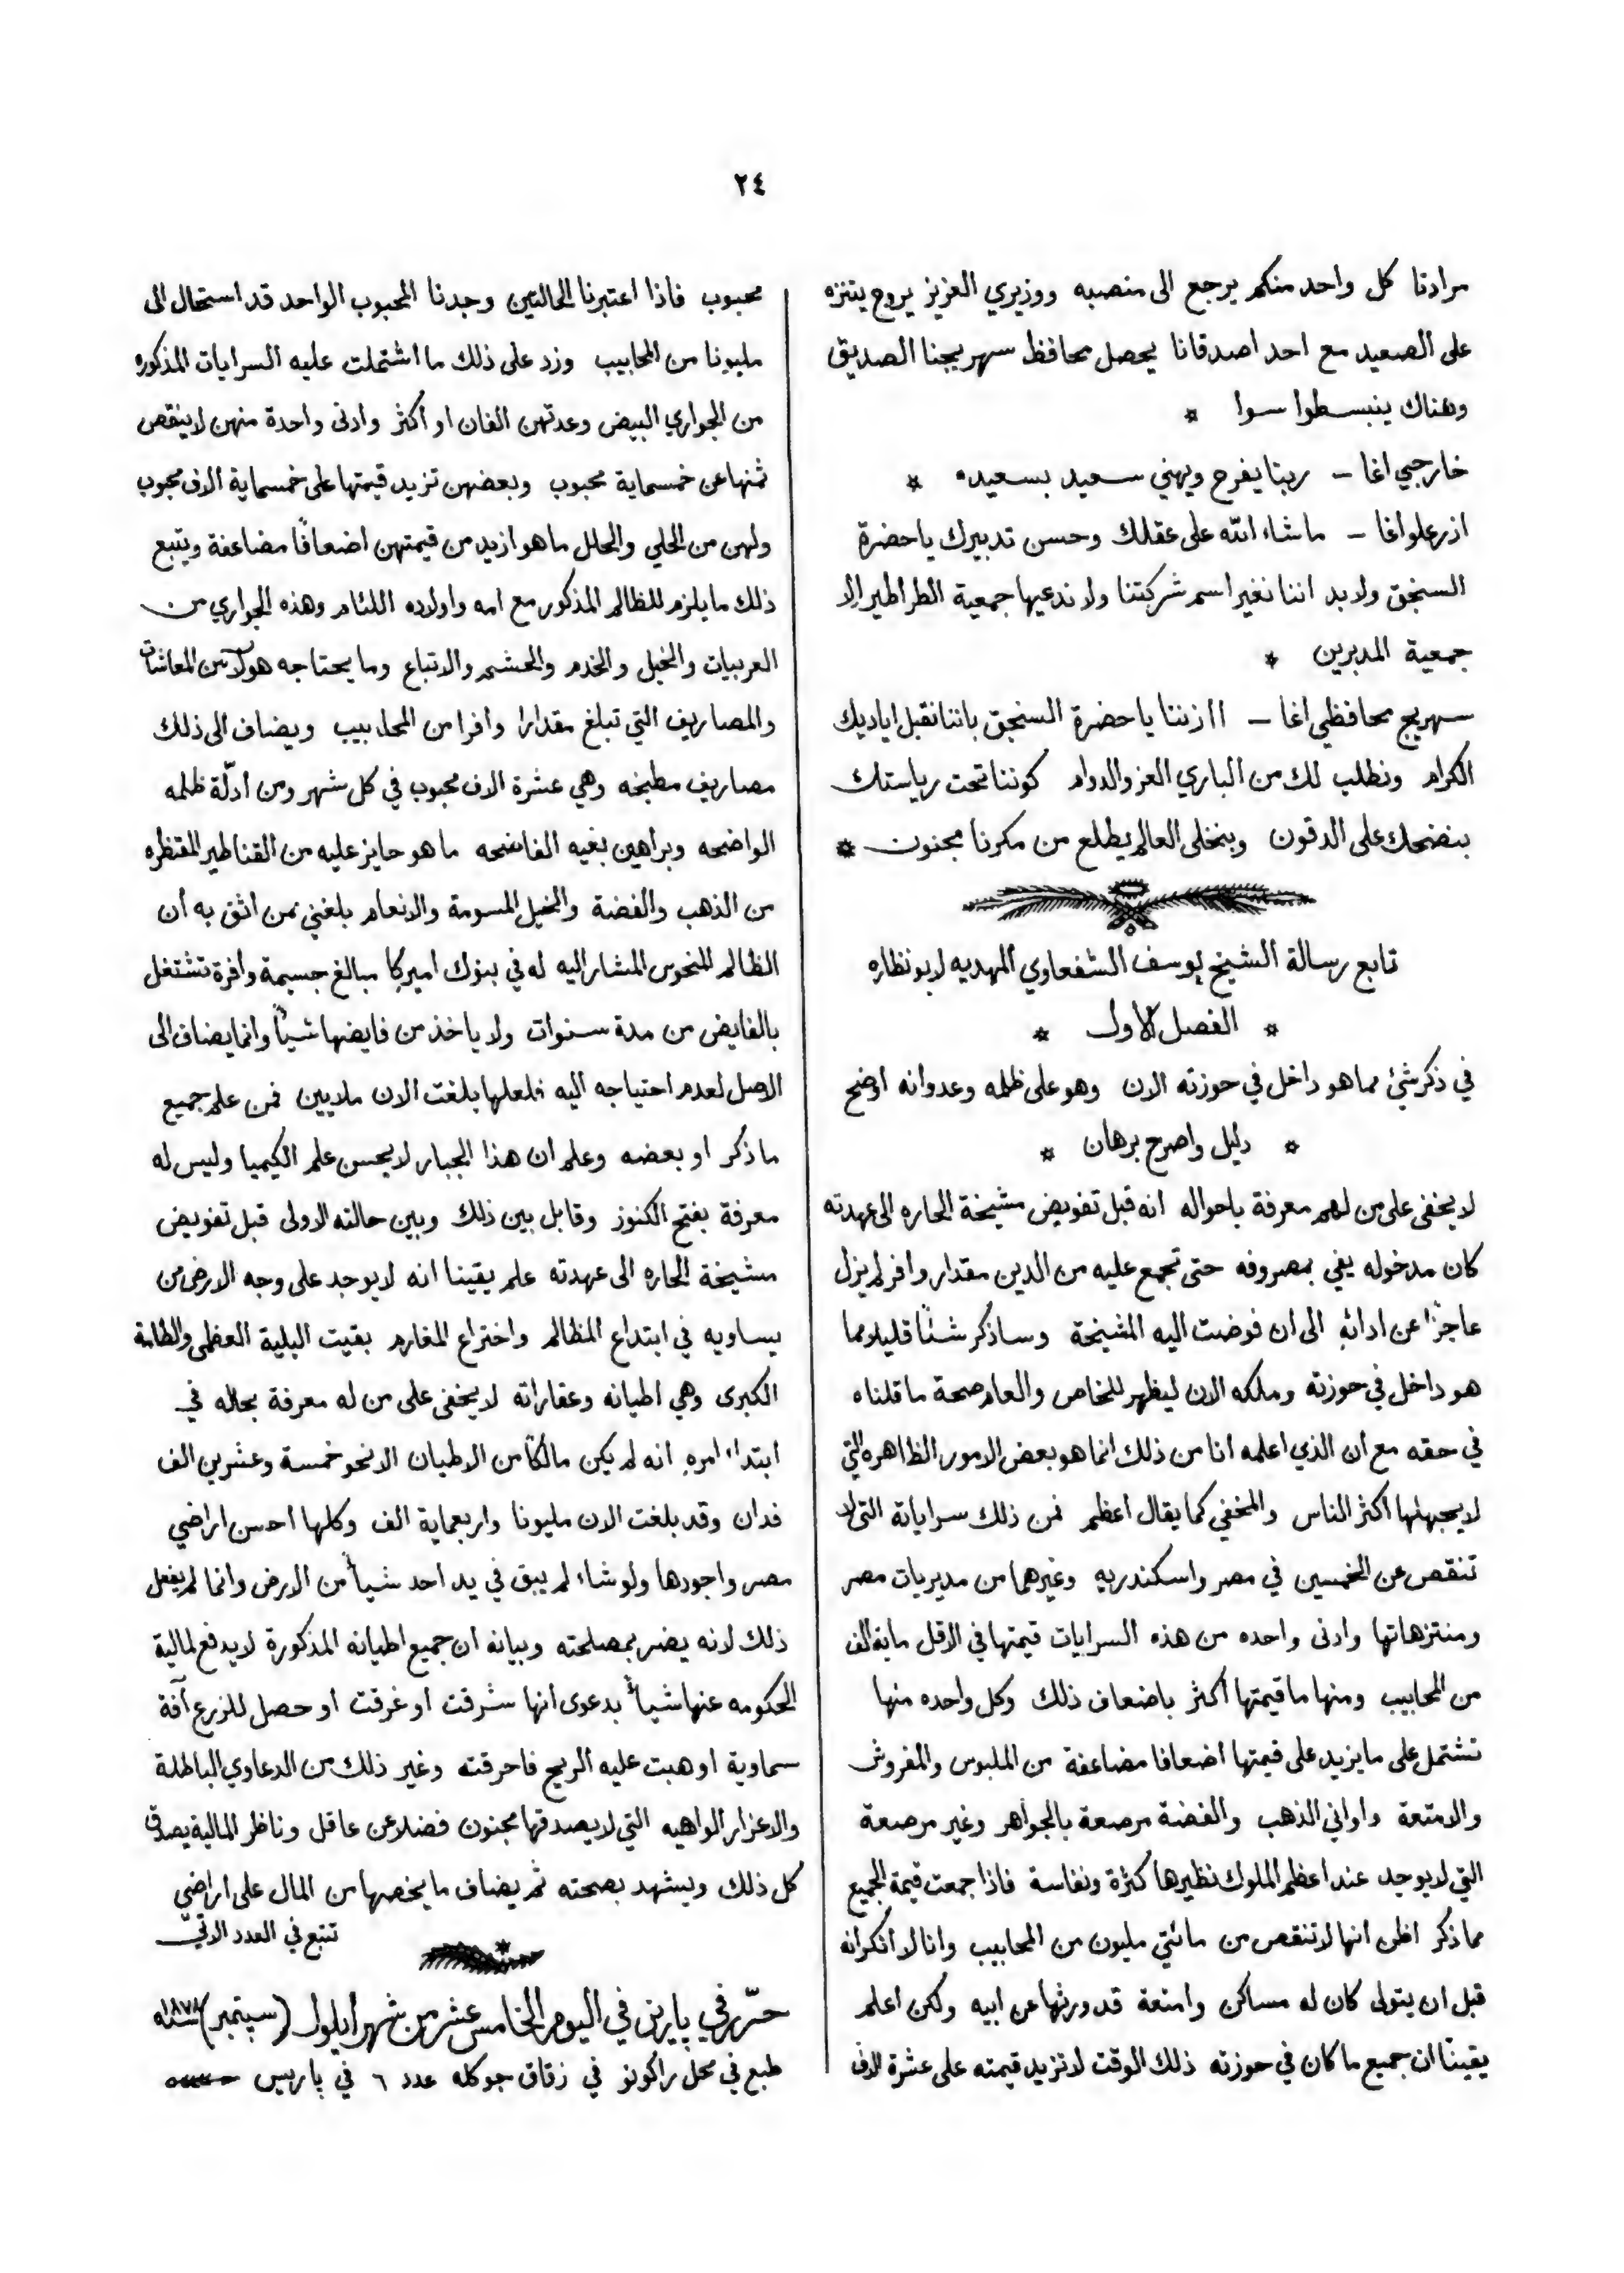 ٢٤
مرادنا كل واحد منكم يرجع الى منصبه ووزيري العزيز يروح يتنزه
على الصعيد مع احد اصدقانا يحصل محافظ سهريجنا الصديق
وهناك ينبسطوا سوا *
خارجي اغا – ربنا يفرح ويهني سعيد بسعيده *
اذرعلوا غا – ماشاء الله على عقلك وحسن تدبيرك ياحضرة
السنجق ولابد اننا نغير اسم شركتنا ولا ندعيها جمعية الطراطير الا
جمعية المدبرين *
سهريج محافظي اغا – ااذننا ياحضرة السنجق باننا نقبل اياديك
الكرام ونطلب لك من الباري العز والدوام كوننا تحت رياستك
بنضحك على الدقون وبنخلى العالم يطلع من مكرنا مجنون *
تابع رسالة الشيخ يوسف الشفعاوي المهديه لابو نظاره
* الفصل الاول *
في ذكر شئ مما هو داخل في حوزته الان وهو على ظلمه وعدوانه اوضح
* دليل واصرح برهان *
لا يخفى على من لهم معرفة باحواله انه قبل تفويض مشيخة الحاره الى عهدته
كان مدخوله يفي بمصروفه حتى تجمع عليه من الدين مقدار وافر لم يزل
عاجزًا عن ادائه الى ان فوضت اليه المشيخة وساذكر شئًا قليلا مما
هو داخل في حوزته وملكه الان ليظهر للخاص والعام صحة ما قلناه
في حقه مع ان الذي اعلمه انا من ذلك انما هو بعض الامور الظاهره التي
لا يجهلها اكثر الناس والمخفي كما يقال اعظم فمن ذلك سراياتة التى لا
تنقص عن الخمسين في مصر واسكندريه وغيرهما من مديريات مصر
ومنتزهاتها وادنى واحده من هذه السرايات قيمتها في الاقل ماية الف
من المحابيب ومنها ما قيمتها اكثر باضعاف ذلك وكل واحده منها
تشتمل على ما يزيد على قيمتها اضعافا مضاعفة من الملبوس والمفروش
والامتعة واواني الذهب والفضة مرصعة بالجواهر وغير مرصعة
التي لا يوجد عند اعظم الملوك نظيرها كثرة ونفاسة فاذا جمعت قيمة الجميع
مما ذكر اظن انها لا تنقص من مائتي مليون من المحابيب وانا لا انكر انه
قبل ان يتولى كان له مساكن وامتعة قد ورثها عن ابيه ولكن اعلم
يقينًا ان جميع ما كان في حوزته ذلك الوقت لا تزيد قيمته على عشرة الاف
محبوب فاذا اعتبرنا الحالتين وجدنا المحبوب الواحد قد استحال الى
مليونا من المحابيب وزد على ذلك ما اشتملت عليه السرايات المذكوره
من الجواري البيض وعدتهن الفان او اكثر وادنى واحدة منهن لا ينقص
ثمنها عن خمسماية محبوب وبعضهن تزيد قيمتها على خمسماية الاف محبوب
ولهن من الحلي والحلل ما هو ازيد من قيمتهن اضعافًا مضاعفة ويتبع
ذلك ما يلزم للظالم المذكور مع امه واولاده اللئام وهذه الجواري من
العربيات والخيل والخدم والحشم والاتباع وما يحتاجه هولاء من المعاشات
والمصاريف التي تبلغ مقدارا وافرا من المحابيب ويضاف الى ذلك
مصاريف مطبخه وهي عشرة الاف محبوب في كل شهر ومن ادلّة ظلمه
الواضحه وبراهين بغيه الفاضحه ما هو حايز عليه من القناطير المقنطره
من الذهب والفضة والخيل المسومة والانعام بلغني ممن اثق به أن
الظالم المنحوس المشار اليه له في بنوك اميركا مبالغ جسيمة وافرة تشتغل
بالفايض من مدة سنوات ولا ياخذ من فايضها شيأً وانما يضاف الى
الاصل لعدم احتياجه اليه فلعلها بلغت الان ملايين فمن علم جميع
ما ذكر او بعضه وعلم ان هذا الجبار لا يحسن علم الكيميا وليس له
معرفة بفتح الكنوز وقابل بين ذلك وبين حالته الاولى قبل تفويض
مشيخة الحاره الى عهدته علم يقينا انه لا يوجد على وجه الارض من
يساويه في ابتداع المظالم واختراع المغارم بقيت البلية العظمى والطامة
الكبرى وهي اطيانه وعقاراته لا يخفى على من له معرفة بحاله في
ابتداء امره انه لم يكن مالكًا من الاطيان الا نحو خمسة وعشرين الف
فدان وقد بلغت الان مليونا واربعماية الف وكلها احسن اراضي
مصر واجودها ولو شاء لم يبق في يد احد شيأً من الارض وانما لم يفعل
ذلك لانه يضر بمصلحته وبيانه ان جميع اطيانه المذكورة لا يدفع لمالية
الحكومه عنها شيأً بدعوى أنها شرقت او غرقت او حصل للزرع آفة
سماوية او هبت عليه الريح فاحرقته وغير ذلك من الدعاوي الباطلة
والاعزار الواهيه التي لا يصدقها مجنون فضلا عن عاقل وناظر المالية يصدق
كل ذلك ويشهد بصحته ثم يضاف ما يخصها من المال على اراضي
تتبع في العدد الاتي
حرّر في پاريز في اليوم الخامس عشر من شهر ايلول (سپتمبر) سنة ١٨٧٨
طبع في محل راكونو في زقاق جوكله عدد ٦ في پاريس